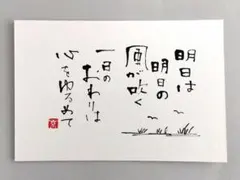 明日は
明日の
風が吹く
一日の
おわりは
心をゆるめて